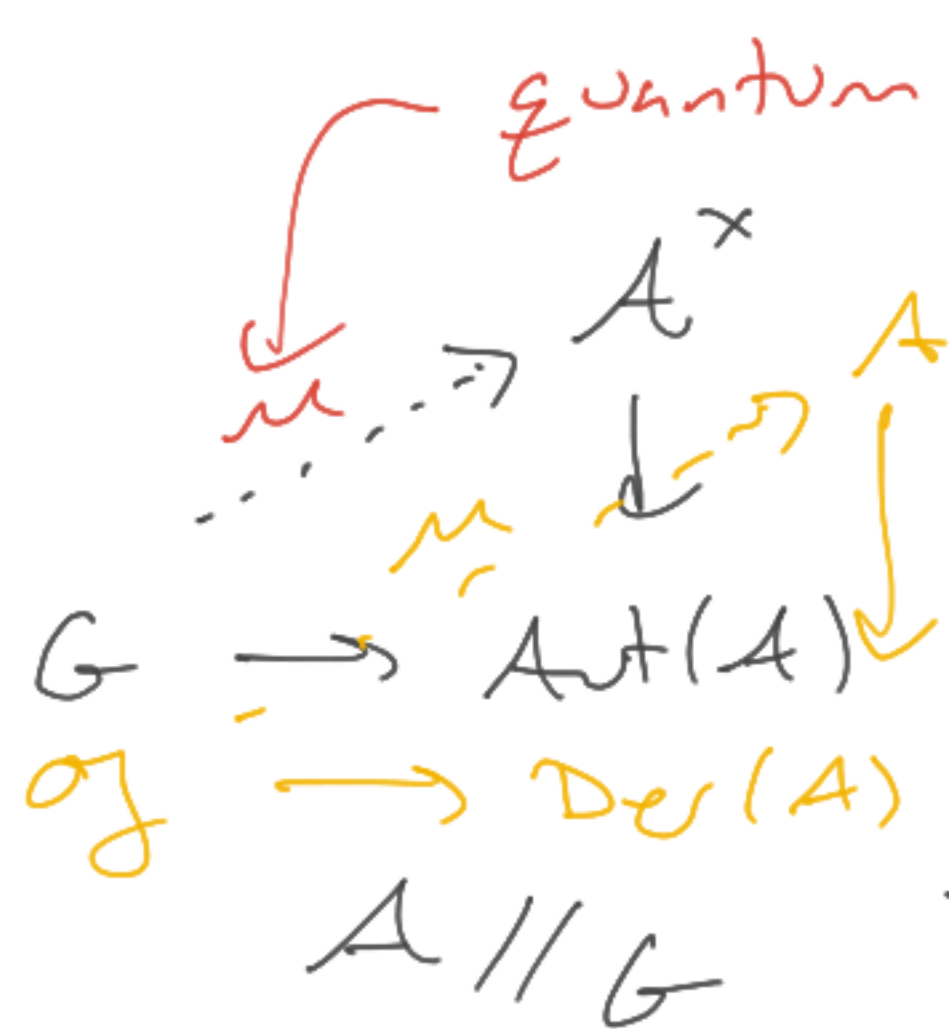 quantum
A^×
A
μ
μ
G → Aut(A)
𝔤 → Der(A)
A // G